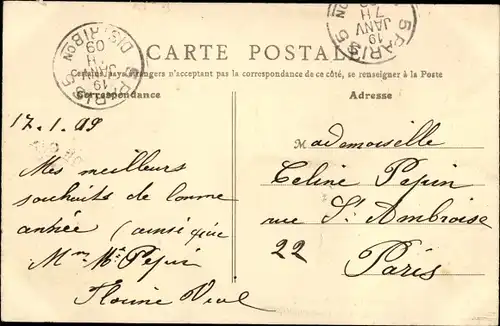 CARTE POSTALE
Certains pays étrangers n'acceptant pas la correspondance de ce côté, se renseigner à la Poste
Correspondance
Adresse
17.1.09
Mes meilleurs
souhaits de bonne
année (ainsi que
Mme Pepin
Florine Vial
Mademoiselle
Celine Pepin
rue St Ambroise
22
Paris
PARIS 5 DISTRIBON
19 JANV 09
PARIS 5
7H 19 JANV